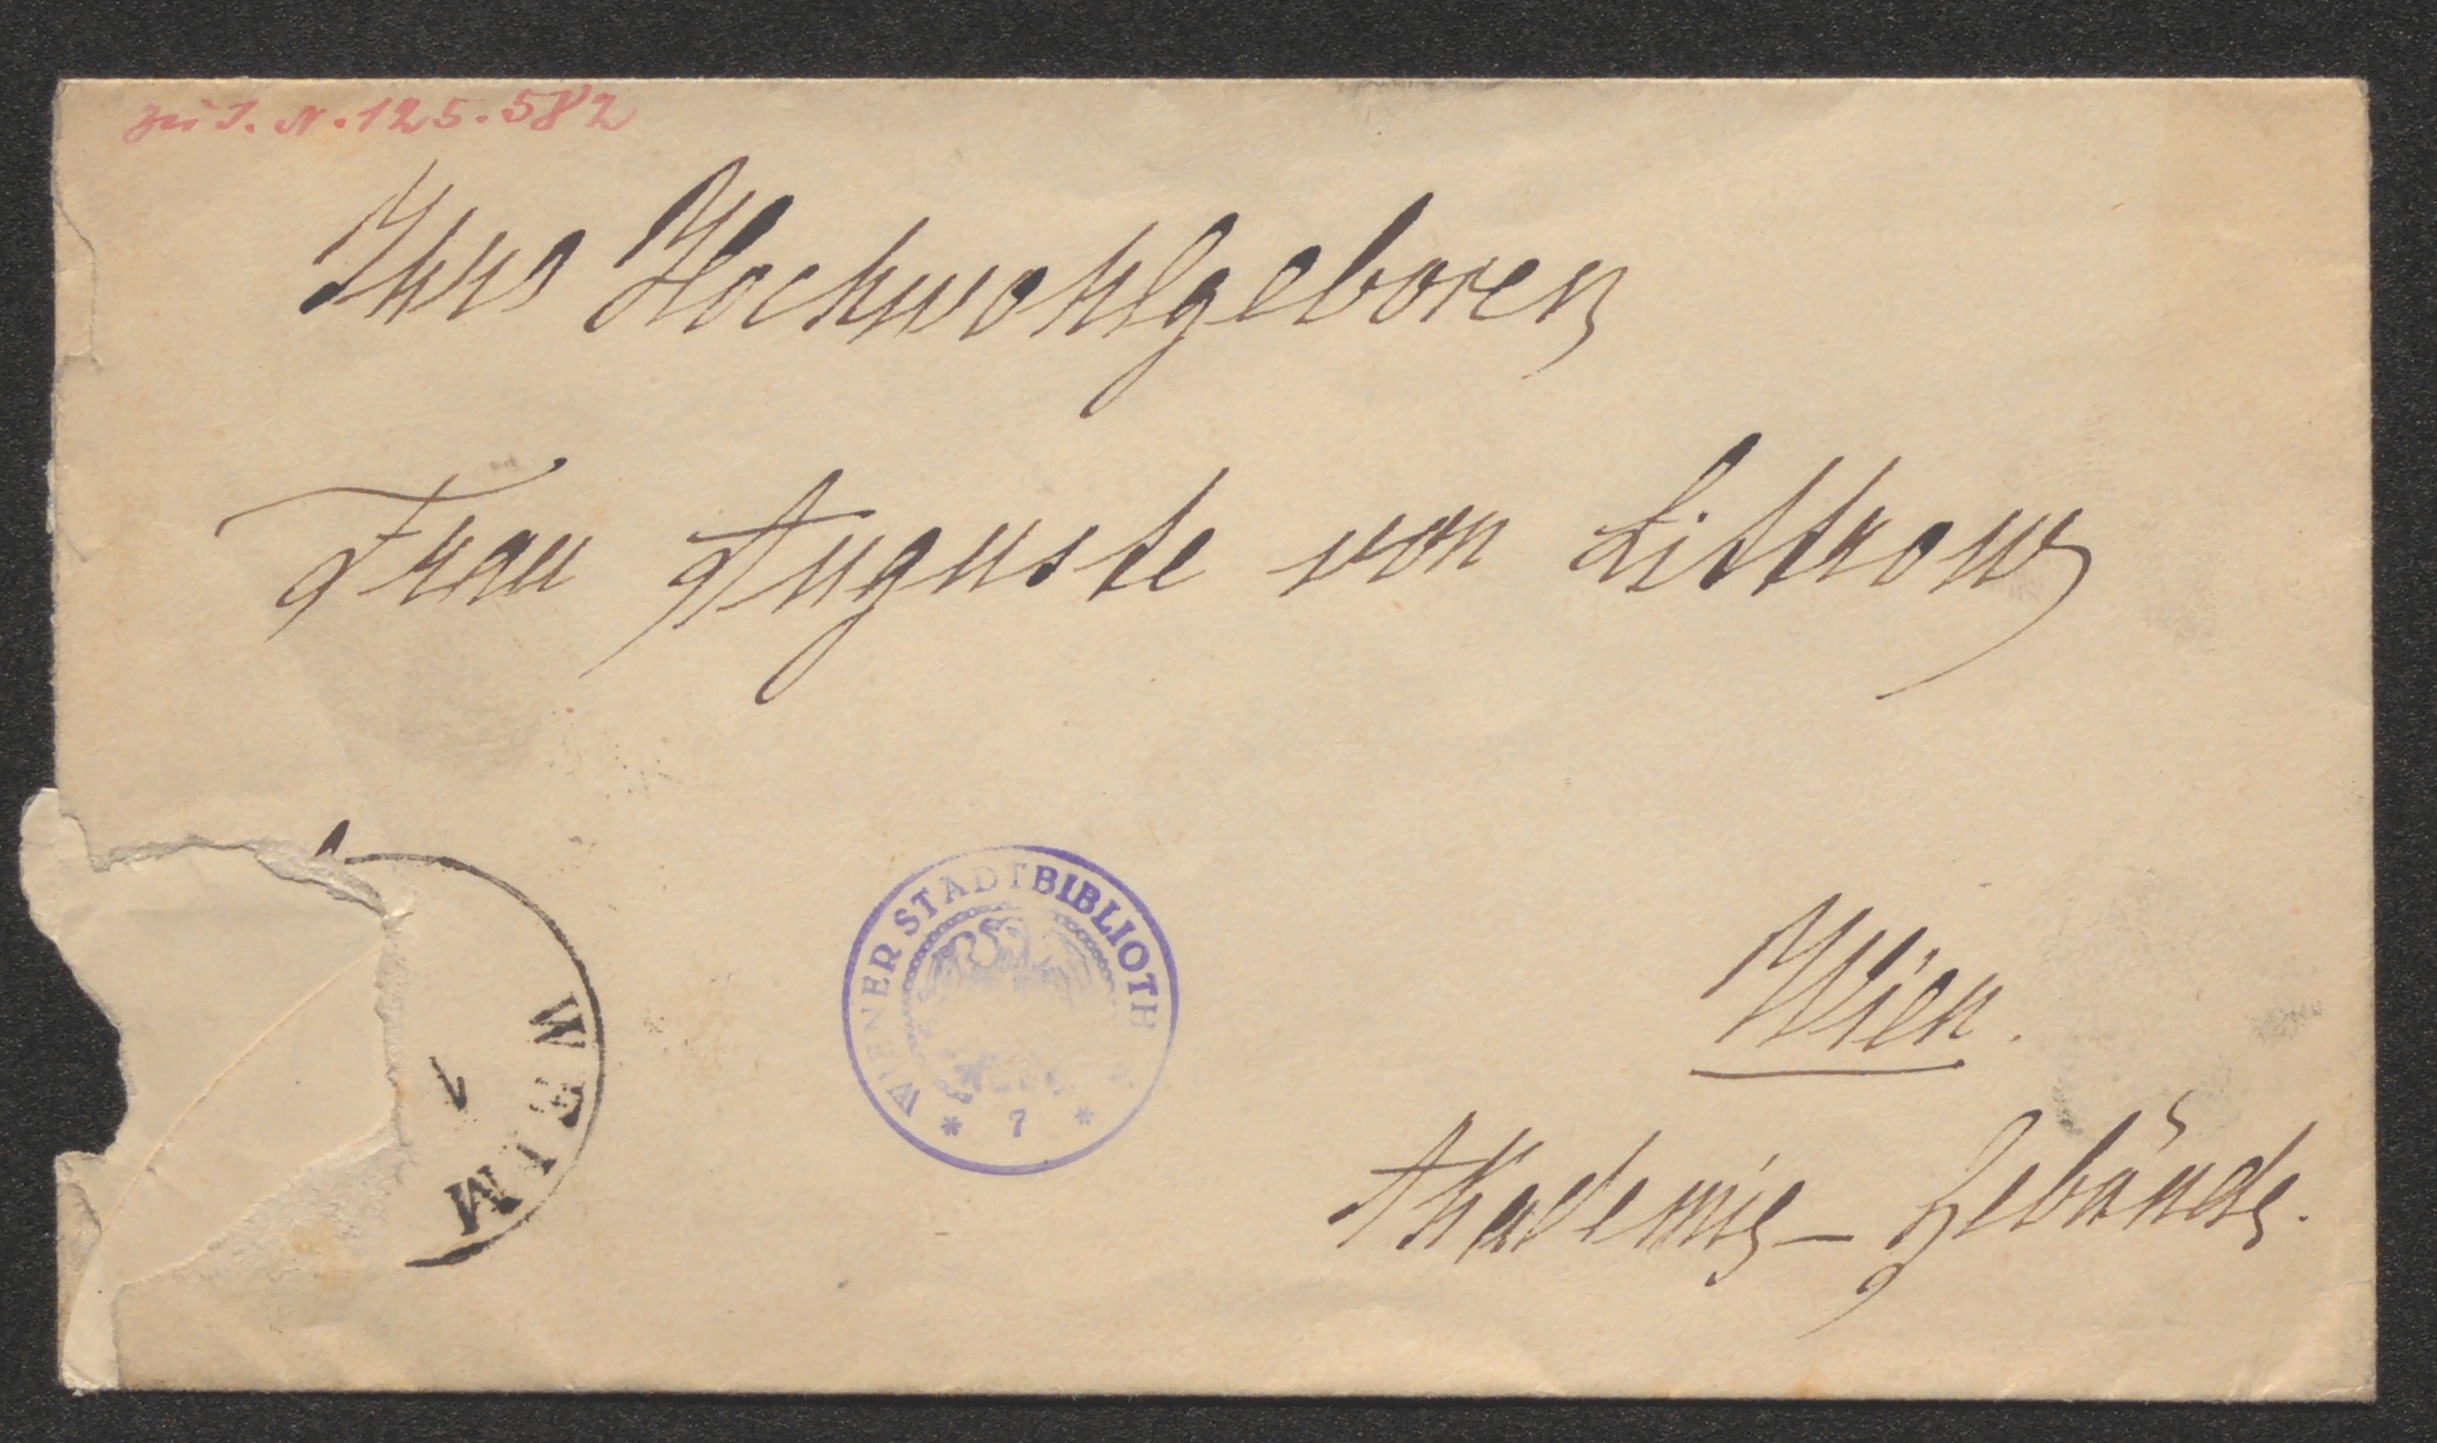 zu I. N. 125.582
Ihre Hochwohlgeboren
Frau Auguste von Littrow
WIENER STADTBIBLIOTHEK
* 7 *
WIEN
Wien.
Akademie-Gebäude.